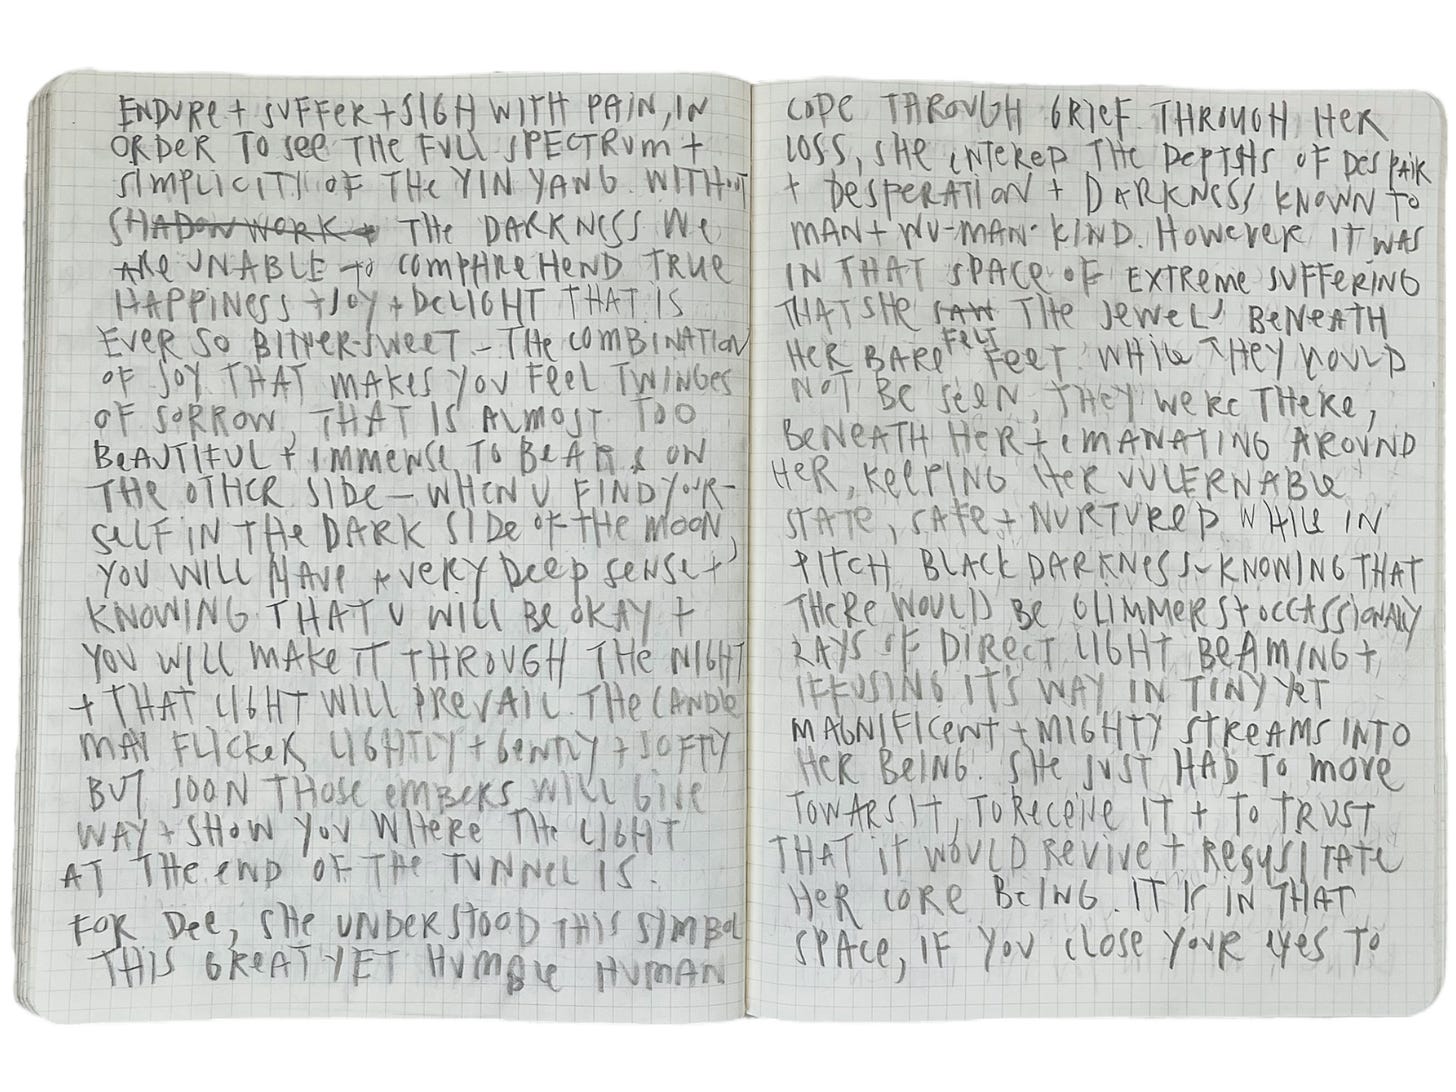 ENDURE + SUFFER + SIGH WITH PAIN, IN
ORDER TO SEE THE FULL SPECTRUM +
SIMPLICITY OF THE YIN YANG. WITHOUT
SHADOW WORK THE DARKNESS WE
ARE UNABLE to COMPHREHEND TRUE
HAPPINESS + JOY + DELIGHT THAT IS
EVER SO BITTER-SWEET - THE COMBINATION
OF JOY THAT MAKES YOU FEEL TWINGES
OF SORROW, THAT IS ALMOST TOO
BEAUTIFUL + IMMENSE TO BEAR & ON
THE OTHER SIDE — WHEN U FIND YOUR-
SELF IN THE DARK SIDE OF THE MOON,
YOU WILL HAVE A VERY DEEP SENSE +
KNOWING THAT U WILL BE OKAY +
YOU WILL MAKE IT THROUGH THE NIGHT
+ THAT LIGHT WILL PREVAIL. THE CANDLE
MAY FLICKER LIGHTLY + GENTLY + SOFTLY
BUT SOON THOSE EMBERS WILL GIVE
WAY + SHOW YOU WHERE THE LIGHT
AT THE END OF THE TUNNEL IS.
FOR DEE, SHE UNDERSTOOD THIS SYMBOL
THIS GREAT YET HUMBLE HUMAN
COPE THROUGH GRIEF. THROUGH HER
LOSS, SHE ENTERED THE DEPTSHS OF DESPAIR
+ DESPERATION + DARKNESS KNOWN TO
MAN + WU-MAN-KIND. HOWEVER IT WAS
IN THAT SPACE OF EXTREME SUFFERING
THAT SHE SAW THE JEWELS BENEATH
FELT
HER BARE FEET WHILE THEY WOULD
NOT BE SEEN, THEY WERE THERE,
BENEATH HER + EMANATING AROUND
HER, KEEPING HER VULERNABLE
STATE, SAFE + NURTURED WHILE IN
PITCH BLACK DARKNESS - KNOWING THAT
THERE WOULD BE GLIMMERS + OCCASSIONALLY
RAYS OF DIRECT LIGHT BEAMING +
IFFUSING IT'S WAY IN TINY YET
MAGNIFICENT + MIGHTY STREAMS INTO
HER BEING. SHE JUST HAD TO MOVE
TOWARS IT, TO RECEIVE IT + TO TRUST
THAT IT WOULD REVIVE + REGUSITATE
HER CORE BEING. IT IS IN THAT
SPACE, IF YOU CLOSE YOUR EYES TO